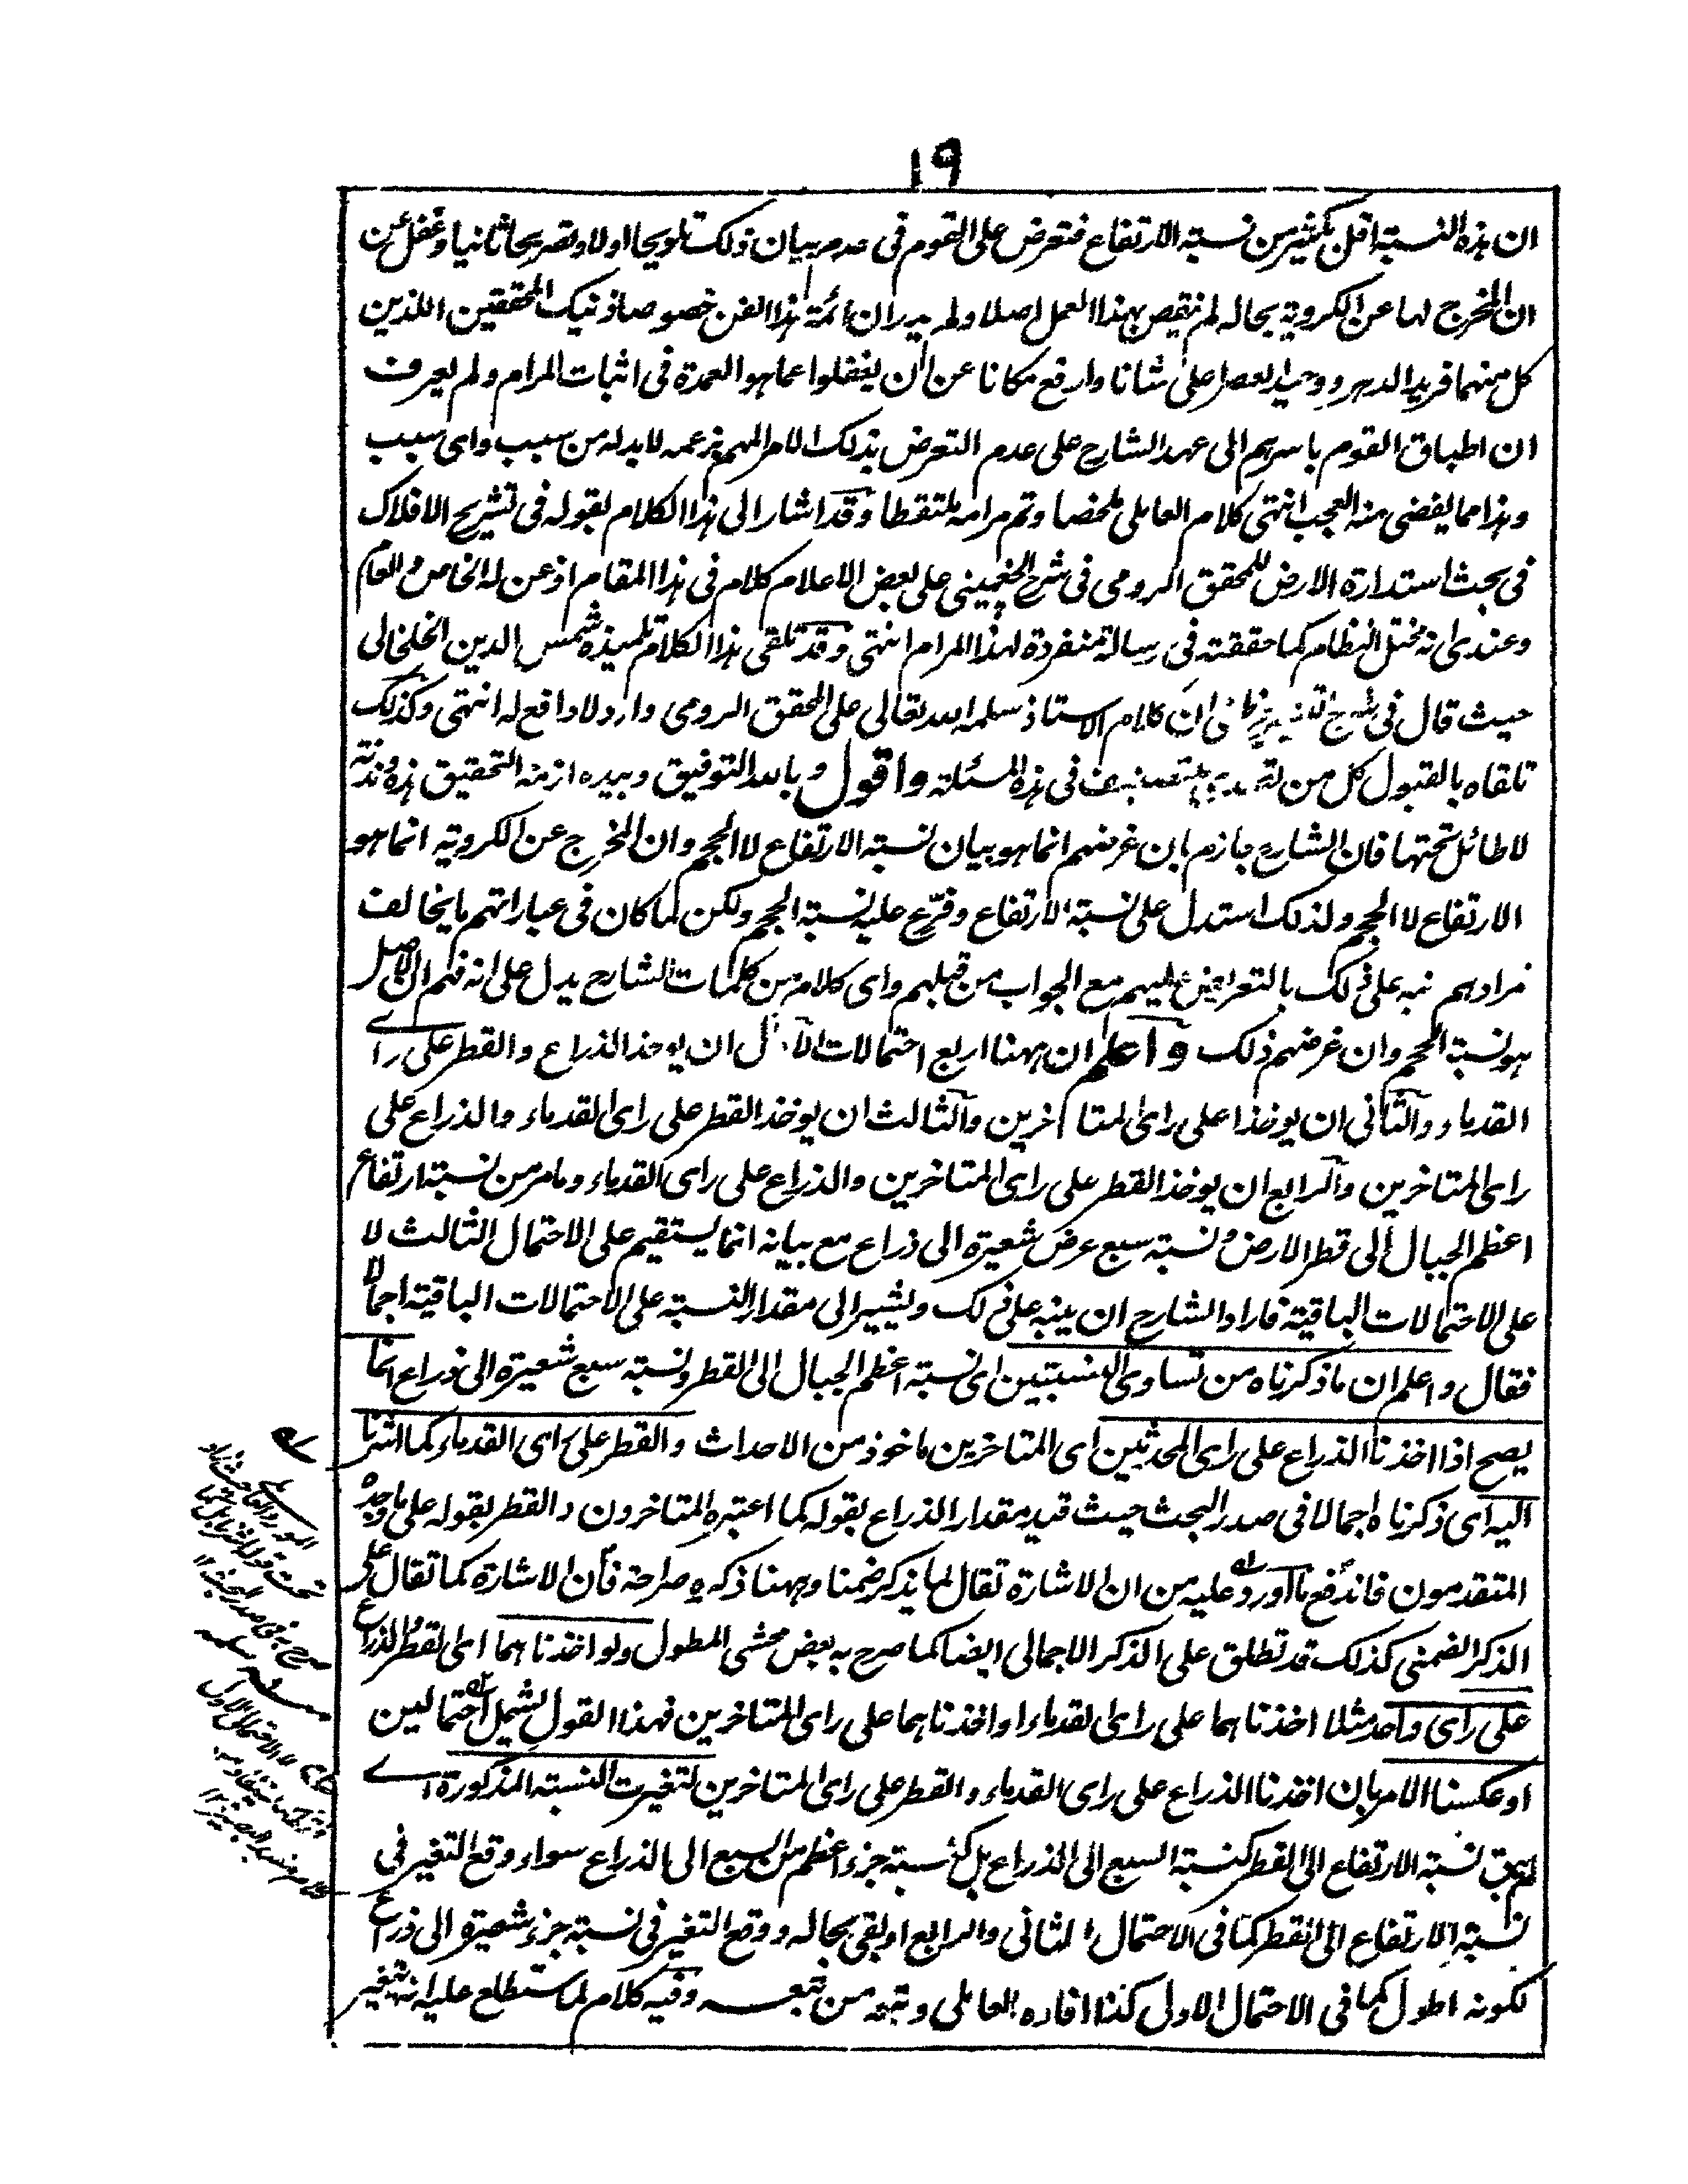 ١٩
ان هذه النسبة اقل بكثير من نسبة الارتفاع فتعرض على القوم فى عدم بيان ذلك تلويحا اولا وتصريحا ثانيا وغفل عن
ان المخرج لها عن الكروية بحاله لم ينقص بهذا العمل اصلا ولم يدر ان ائمة هذا الفن خصوصا ذينك المحققين اللذين
كل منهما فريد الدهر ووحيد العصر اعلى شانا وارفع مكانا عن ان يغفلوا عما هو العمدة فى اثبات المرام ولم يعرف
ان اطباق القوم باسرهم الى عهد الشارح على عدم التعرض بذلك الامر المهم بزعمه لا بد له من سبب واى سبب
وهذا مما يفضى منه العجب انتهى كلام العاملى ملخصا وتم مرامه ملتقطا وقد اشار الى هذا الكلام بقوله فى تشريح الافلاك
فى بحث استدارة الارض للمحقق الرومى فى شرح الجغمينى على بعض الاعلام كلام فى هذا المقام اذعن له الخاص والعام
وعندى انه مختل النظام كما حققته فى رسالة منفردة لهذا المرام انتهى وقد تلقى هذا الكلام تلميذه شمس الدين الخلخالى
حيث قال فى شرح ان كلام الاستاذ سلمه الله تعالى على المحقق الرومى وارد لا دافع له انتهى وكذلك
تلقاه بالقبول كل من فى هذه المسئلة واقول وبالله التوفيق وبيده ازمة التحقيق هذه ندنة
لا طائل تحتها فان الشارح جازم بان غرضهم انما هو بيان نسبة الارتفاع لا الحجم وان المخرج عن الكروية انما هو
الارتفاع لا الحجم ولذلك استدل على نسبة الارتفاع وفرّع عليه نسبة الحجم ولكن لما كان فى عباراتهم ما يخالف
مرادهم نبه على ذلك بالتعريض عليهم مع الجواب من قبلهم واى كلام من كلمات الشارح يدل على انه فهم ان الاصل
هو نسبة الحجم وان غرضهم ذلك واعلم ان ههنا اربع احتمالات الاول ان يوخذ الذراع والقطر على راى
القدماء والثانى ان يوخذا على راى المتاخرين والثالث ان يوخذ القطر على راى القدماء والذراع على
راى المتاخرين والرابع ان يوخذ القطر على راى المتاخرين والذراع على راى القدماء وما مر من نسبة ارتفاع
اعظم الجبال الى قطر الارض ونسبة سبع عرض شعيرة الى ذراع مع بيانه انما يستقيم على الاحتمال الثالث لا
على الاحتمالات الباقية فاراد الشارح ان ينبه على ذلك ويشير الى مقدار النسبة على الاحتمالات الباقية اجمالا
فقال واعلم ان ما ذكرناه من تساوى النسبتين اى نسبة اعظم الجبال الى القطر ونسبة سبع شعيرة الى ذراع انما
يصح اذا اخذنا الذراع على راى المحدثين اى المتاخرين ماخوذ من الاحداث والقطر على راى القدماء كما اشرنا
اليه اى ذكرناه اجمالا فى صدر البحث حيث قيد مقدار الذراع بقوله كما اعتبره المتاخرون والقطر بقوله على ما وجده
المتقدمون فاندفع ما اورد عليه من ان الاشارة تقال لما يذكر ضمنا وههنا ذكره صراحة فان الاشارة كما تقال على
الذكر الضمنى كذلك قد تطلق على الذكر الاجمالى ايضا كما صرح به بعض محشى المطول ولو اخذناهما اى القطر والذراع
على راى واحد مثلا اخذناهما على راى القدماء او اخذناهما على راى المتاخرين فهذا القول يشمل احتمالين
او عكسنا الامر بان اخذنا الذراع على راى القدماء والقطر على راى المتاخرين لتغيرت النسبة المذكورة اى
لم يبق نسبة الارتفاع الى القطر كنسبة السبع الى الذراع بل كنسبة جزء اعظم من السبع الى الذراع سواء وقع التغير فى
نسبة الارتفاع الى القطر كما فى الاحتمال الثانى والرابع او بقى بحاله ووقع التغير فى نسبة جزء شعيرة الى ذراع
لكونه اطول كما فى الاحتمال الاول كذا افاده العاملى وتبعه من تبعه وفيه كلام لما ستطلع عليه انه تغير